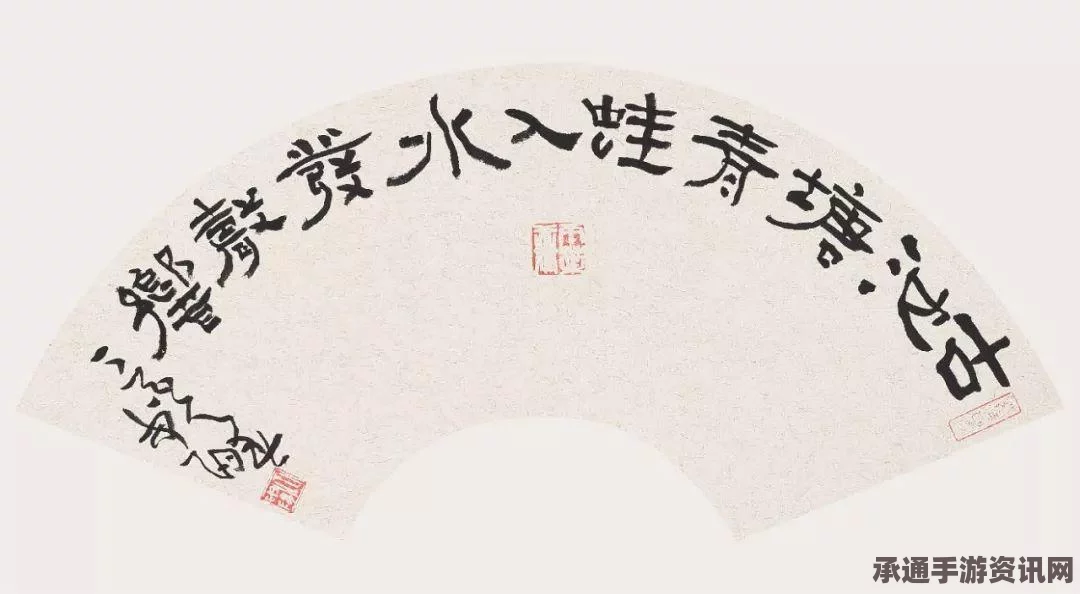 古池塘青蛙入水發聲響
承通手游资讯网